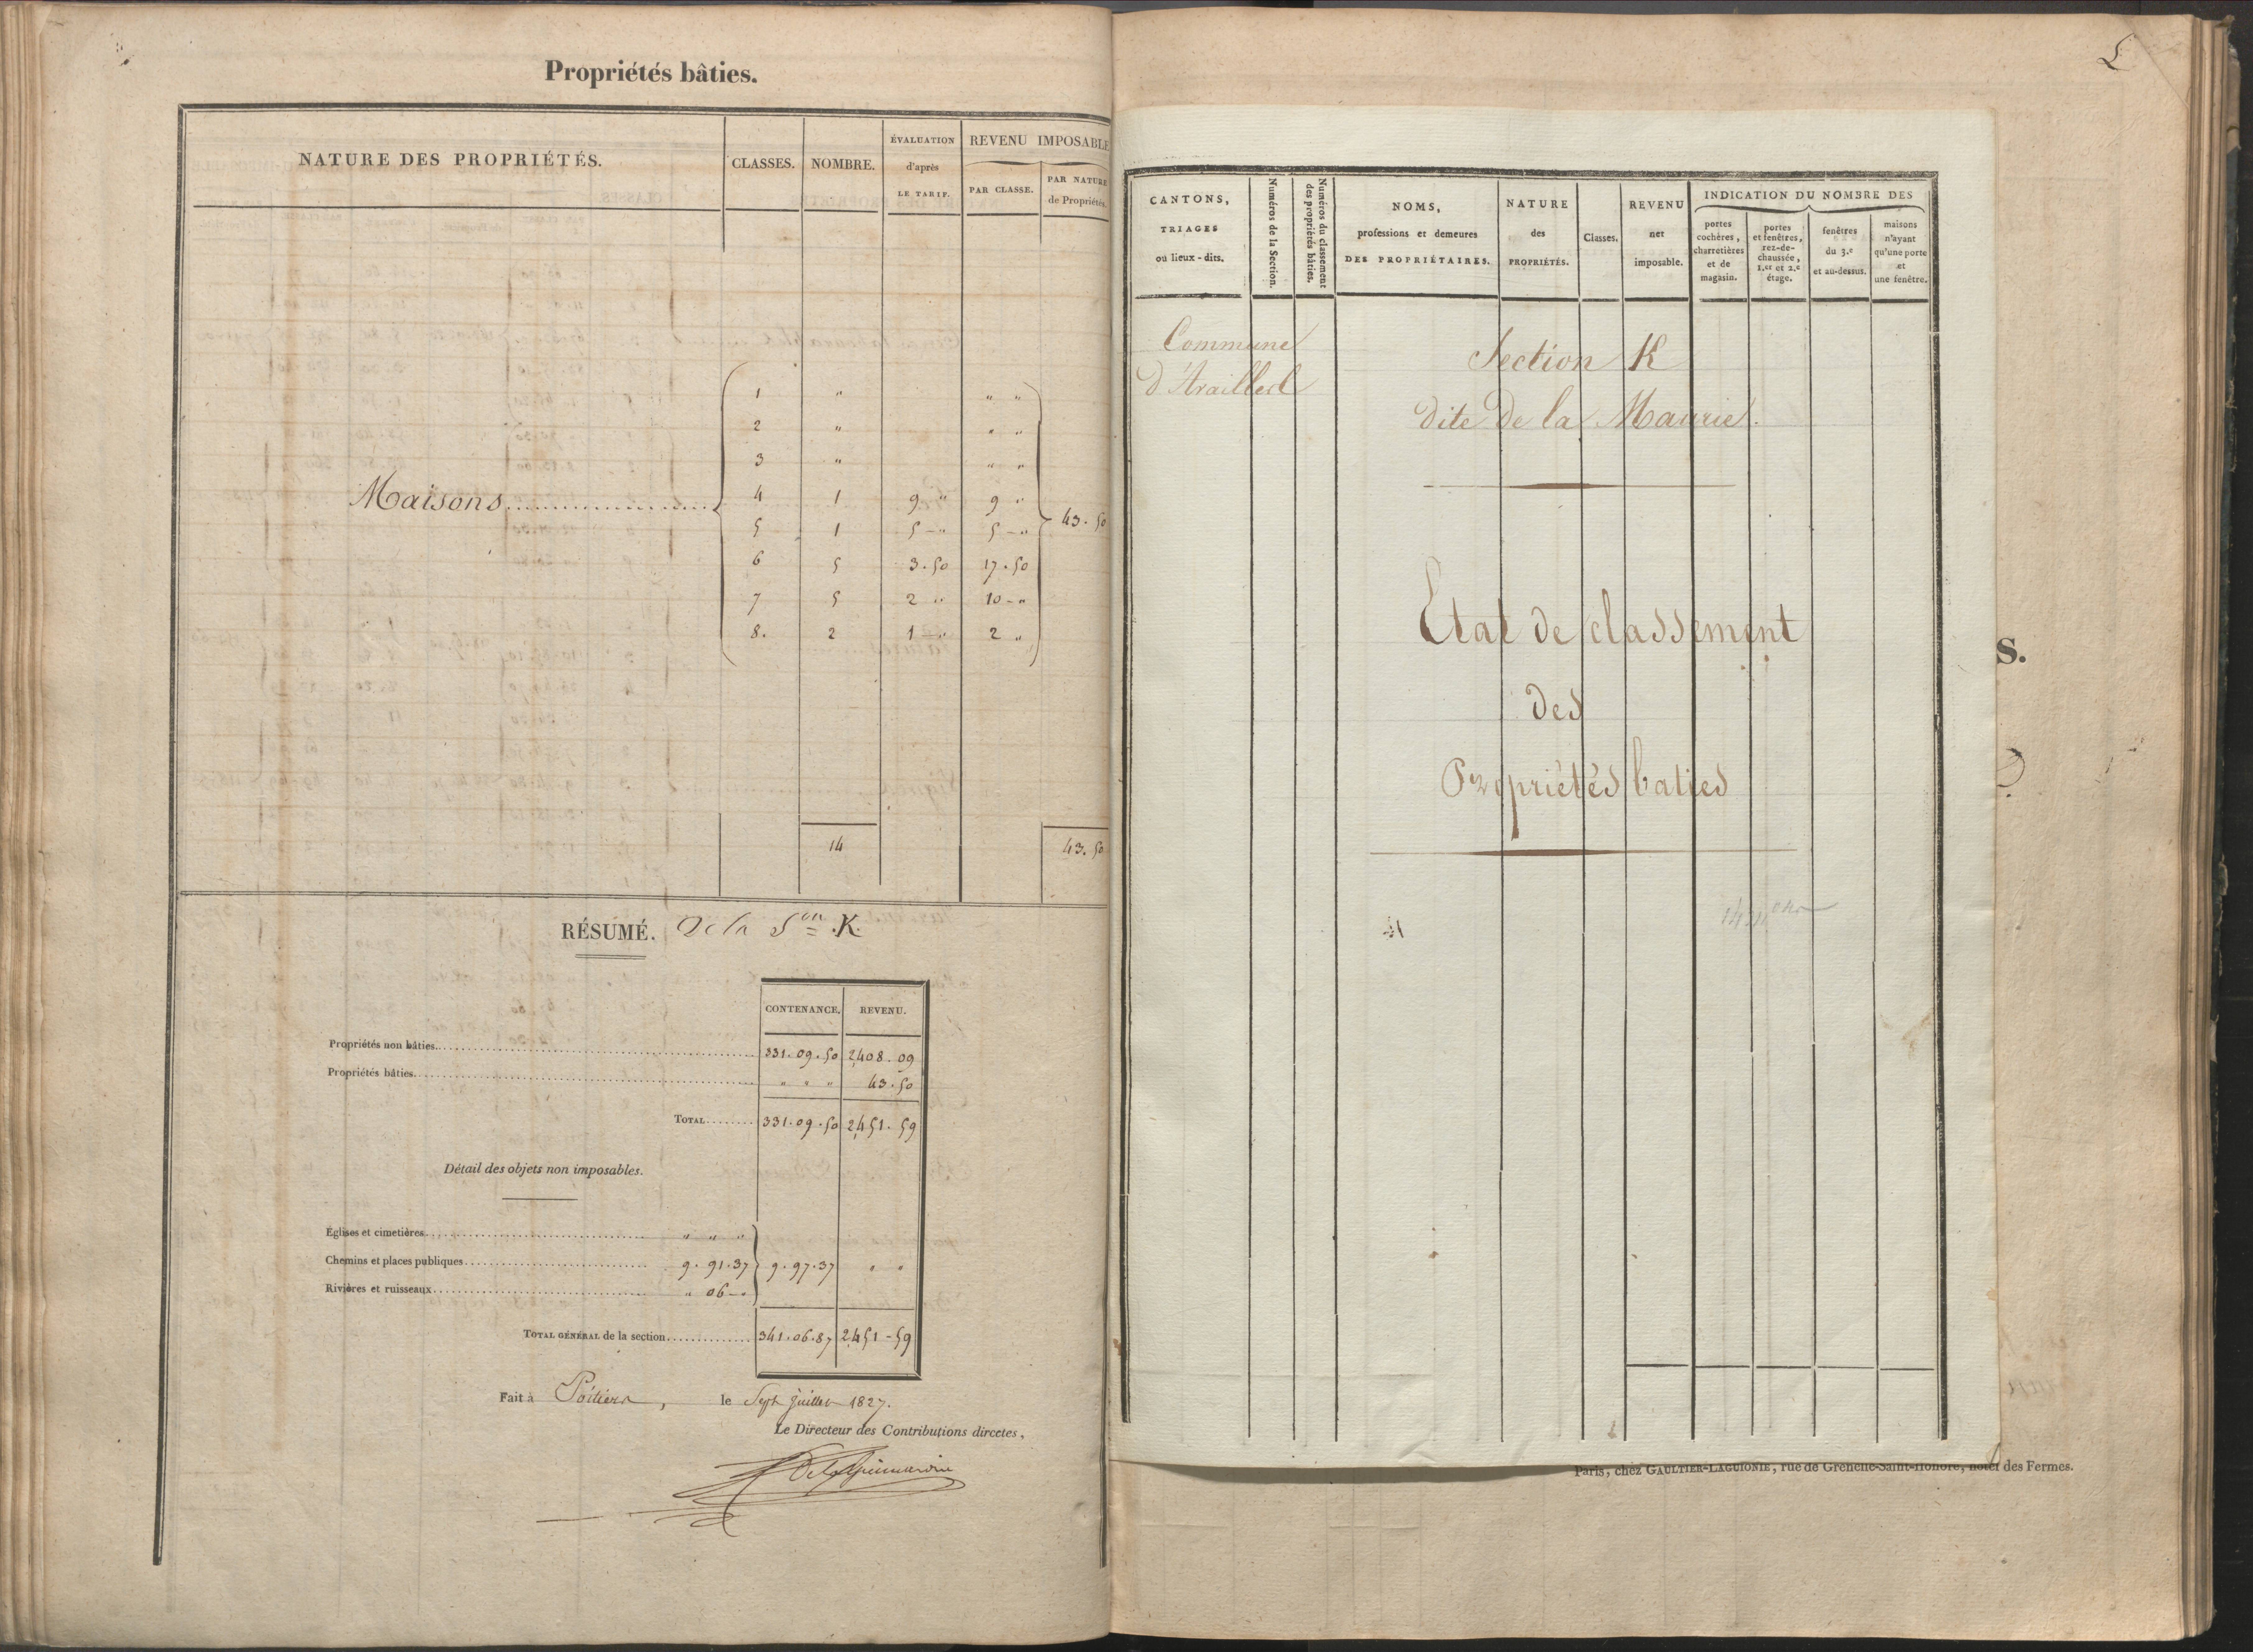 Propriétés bâties.
NATURE DES PROPRIÉTÉS. CLASSES. NOMBRE. ÉVALUATION d'après LE TARIF. REVENU IMPOSABLE
PAR CLASSE. PAR NATURE de Propriétés.
1 " " "
2 " " "
3 " " "
Maisons 4 1 9 " 9 "
5 1 5 - " 5 - " 43.50
6 5 3.50 17.50
7 5 2 " 10 - "
8. 2 1 - " 2 "
14 43.50
RÉSUMÉ. De la Son K.
CONTENANCE. REVENU.
Propriétés non bâties 331.09.50 2408.09
Propriétés bâties " " " 43.50
TOTAL 331.09.50 2451.59
Détail des objets non imposables.
Églises et cimetières " " "
Chemins et places publiques 9.91.37 9.97.37 " "
Rivières et ruisseaux " 06 - "
TOTAL GÉNÉRAL de la section 341.06.87 2451-59
Fait à Poitiers, le Sept juillet 1827.
Le Directeur des Contributions dircetes,
L
CANTONS, TRIAGES ou lieux-dits.
Numéros de la Section.
Numéros du classement des propriétés bâties.
NOMS, professions et demeures DES PROPRIÉTAIRES.
NATURE des PROPRIÉTÉS.
Classes.
REVENU net imposable.
INDICATION DU NOMBRE DES
portes cochères, charretières et de magasin.
portes et fenêtres, rez-de-chaussée, 1.er et 2.e étage.
fenêtres du 3.e et au-dessus.
maisons n'ayant qu'une porte et une fenêtre.
Commune
d'Availles
Section K
dite de la Maurie.
Etat de classement
des
Propriétés baties
S.
Paris, chez GAULTIER-LAGUIONIE, rue de Grenelle-Saint-Honoré, hôtel des Fermes.